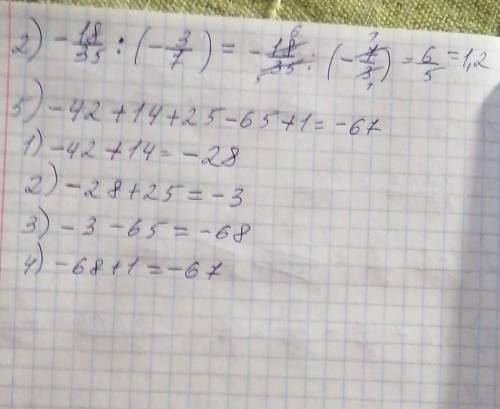 2) -18/35 : (-3/7) = -18/35 : (-7/3) = 6/5 = 1,2
5) -42+14+25-65+1=-67
1) -42+14=-28
2) -28+25=-3
3) -3-65=-68
4) -68+1=-67